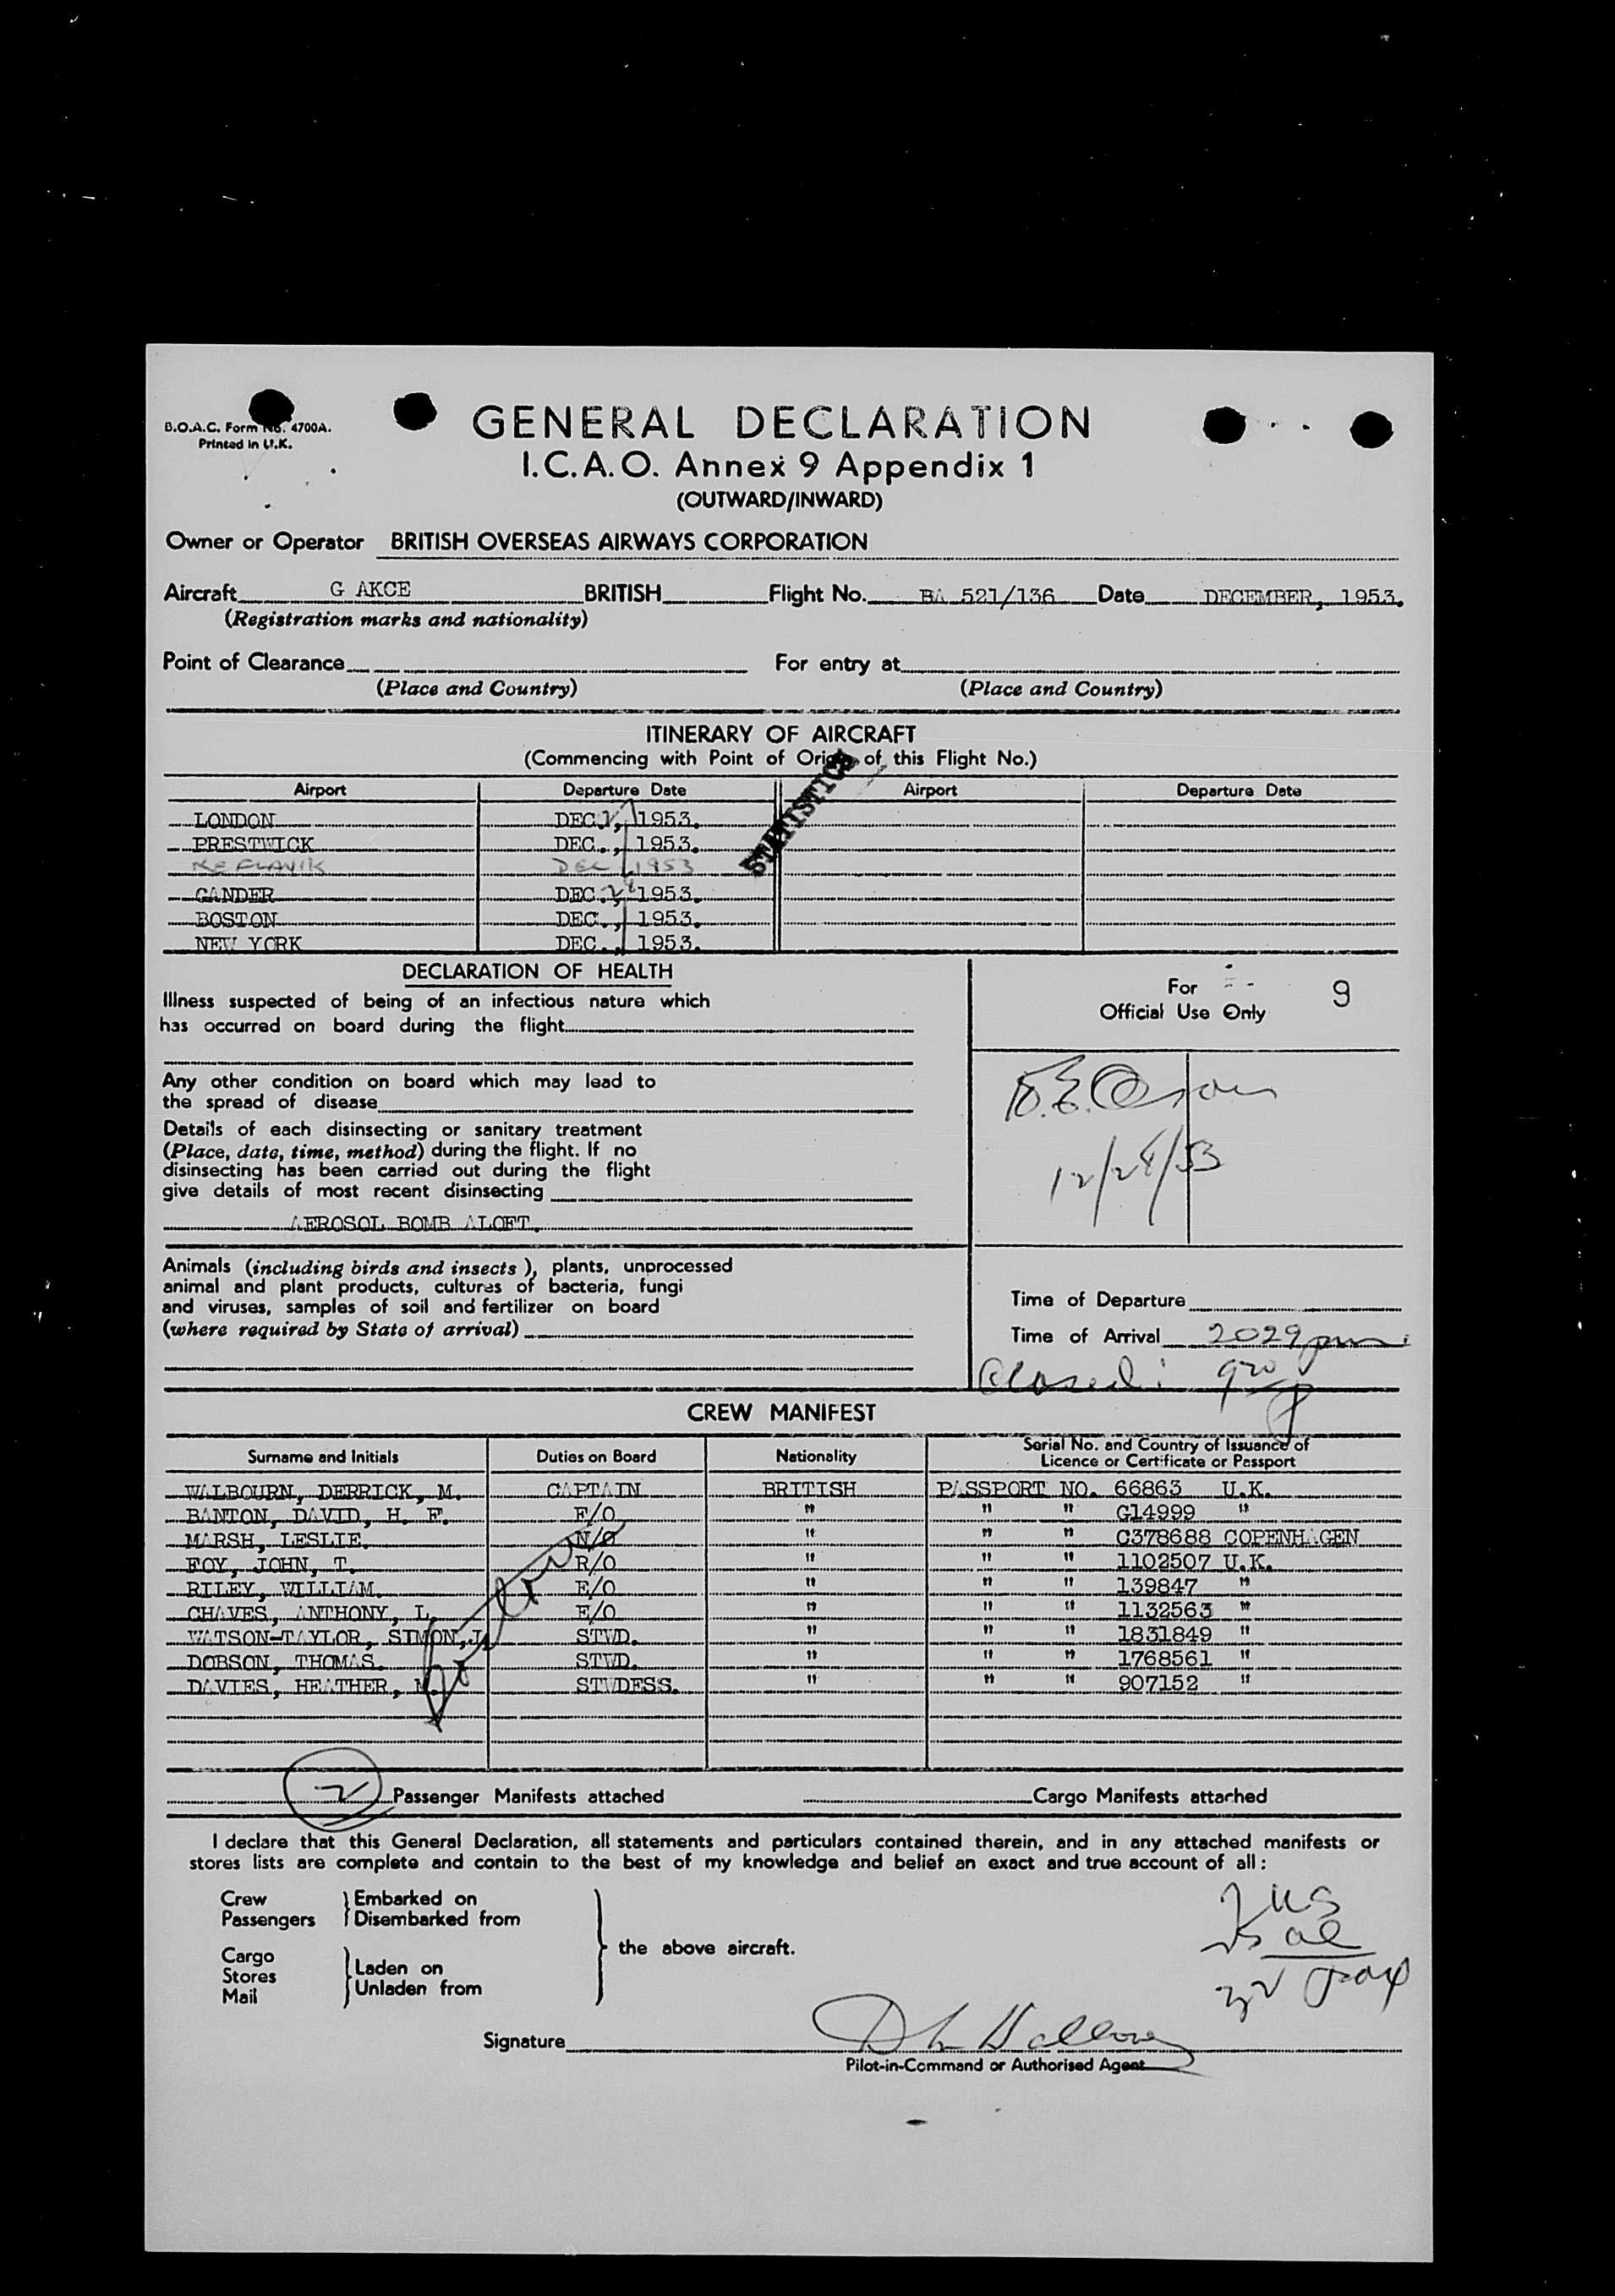 B.O.A.C. Form No. 4700A.
Printed in U.K.
GENERAL DECLARATION
I.C.A.O. Annex 9 Appendix 1
(OUTWARD/INWARD)
Owner or Operator BRITISH OVERSEAS AIRWAYS CORPORATION
Aircraft G AKCE BRITISH Flight No. BA 521/136 Date DECEMBER, 1953.
(Registration marks and nationality)
Point of Clearance For entry at
(Place and Country) (Place and Country)
ITINERARY OF AIRCRAFT
(Commencing with Point of Origin of this Flight No.)
STATISTICS
Airport Departure Date Airport Departure Date
LONDON DEC. , 1953.
PRESTWICK DEC., 1953.
KEFLAVIK DEC 1953
GANDER DEC. , 1953.
BOSTON DEC., 1953.
NEW YORK DEC., 1953.
DECLARATION OF HEALTH
Illness suspected of being of an infectious nature which
has occurred on board during the flight
For
Official Use Only 9
Any other condition on board which may lead to
the spread of disease
Details of each disinsecting or sanitary treatment
(Place, date, time, method) during the flight. If no
disinsecting has been carried out during the flight
give details of most recent disinsecting
AEROSOL BOMB ALOFT.
12/28/53
Animals (including birds and insects), plants, unprocessed
animal and plant products, cultures of bacteria, fungi
and viruses, samples of soil and fertilizer on board
(where required by State of arrival)
Time of Departure
Time of Arrival 2029 pm
Closed: 920 p
CREW MANIFEST
Surname and Initials Duties on Board Nationality Serial No. and Country of Issuance of Licence or Certificate or Passport
WALBOURN, DERRICK, M. CAPTAIN BRITISH PASSPORT NO. 66863 U.K.
BANTON, DAVID, H. F. F/O " " " G14999 "
MARSH, LESLIE. N/O " " " C378688 COPENHAGEN
FOY, JOHN, T. R/O " " " 1102507 U.K.
RILEY, WILLIAM. E/O " " " 139847 "
CHAVES, ANTHONY, L. E/O " " " 1132563 "
WATSON-TAYLOR, SIMON, J. STWD. " " " 1831849 "
DOBSON, THOMAS. STWD. " " " 1768561 "
DAVIES, HEATHER, M. STWDESS. " " " 907152 "
2 Passenger Manifests attached Cargo Manifests attached
I declare that this General Declaration, all statements and particulars contained therein, and in any attached manifests or
stores lists are complete and contain to the best of my knowledge and belief an exact and true account of all:
Crew Embarked on
Passengers Disembarked from
the above aircraft.
Cargo
Stores Laden on
Mail Unladen from
7 US
25 al
32 pax
Signature
Pilot-in-Command or Authorised Agent